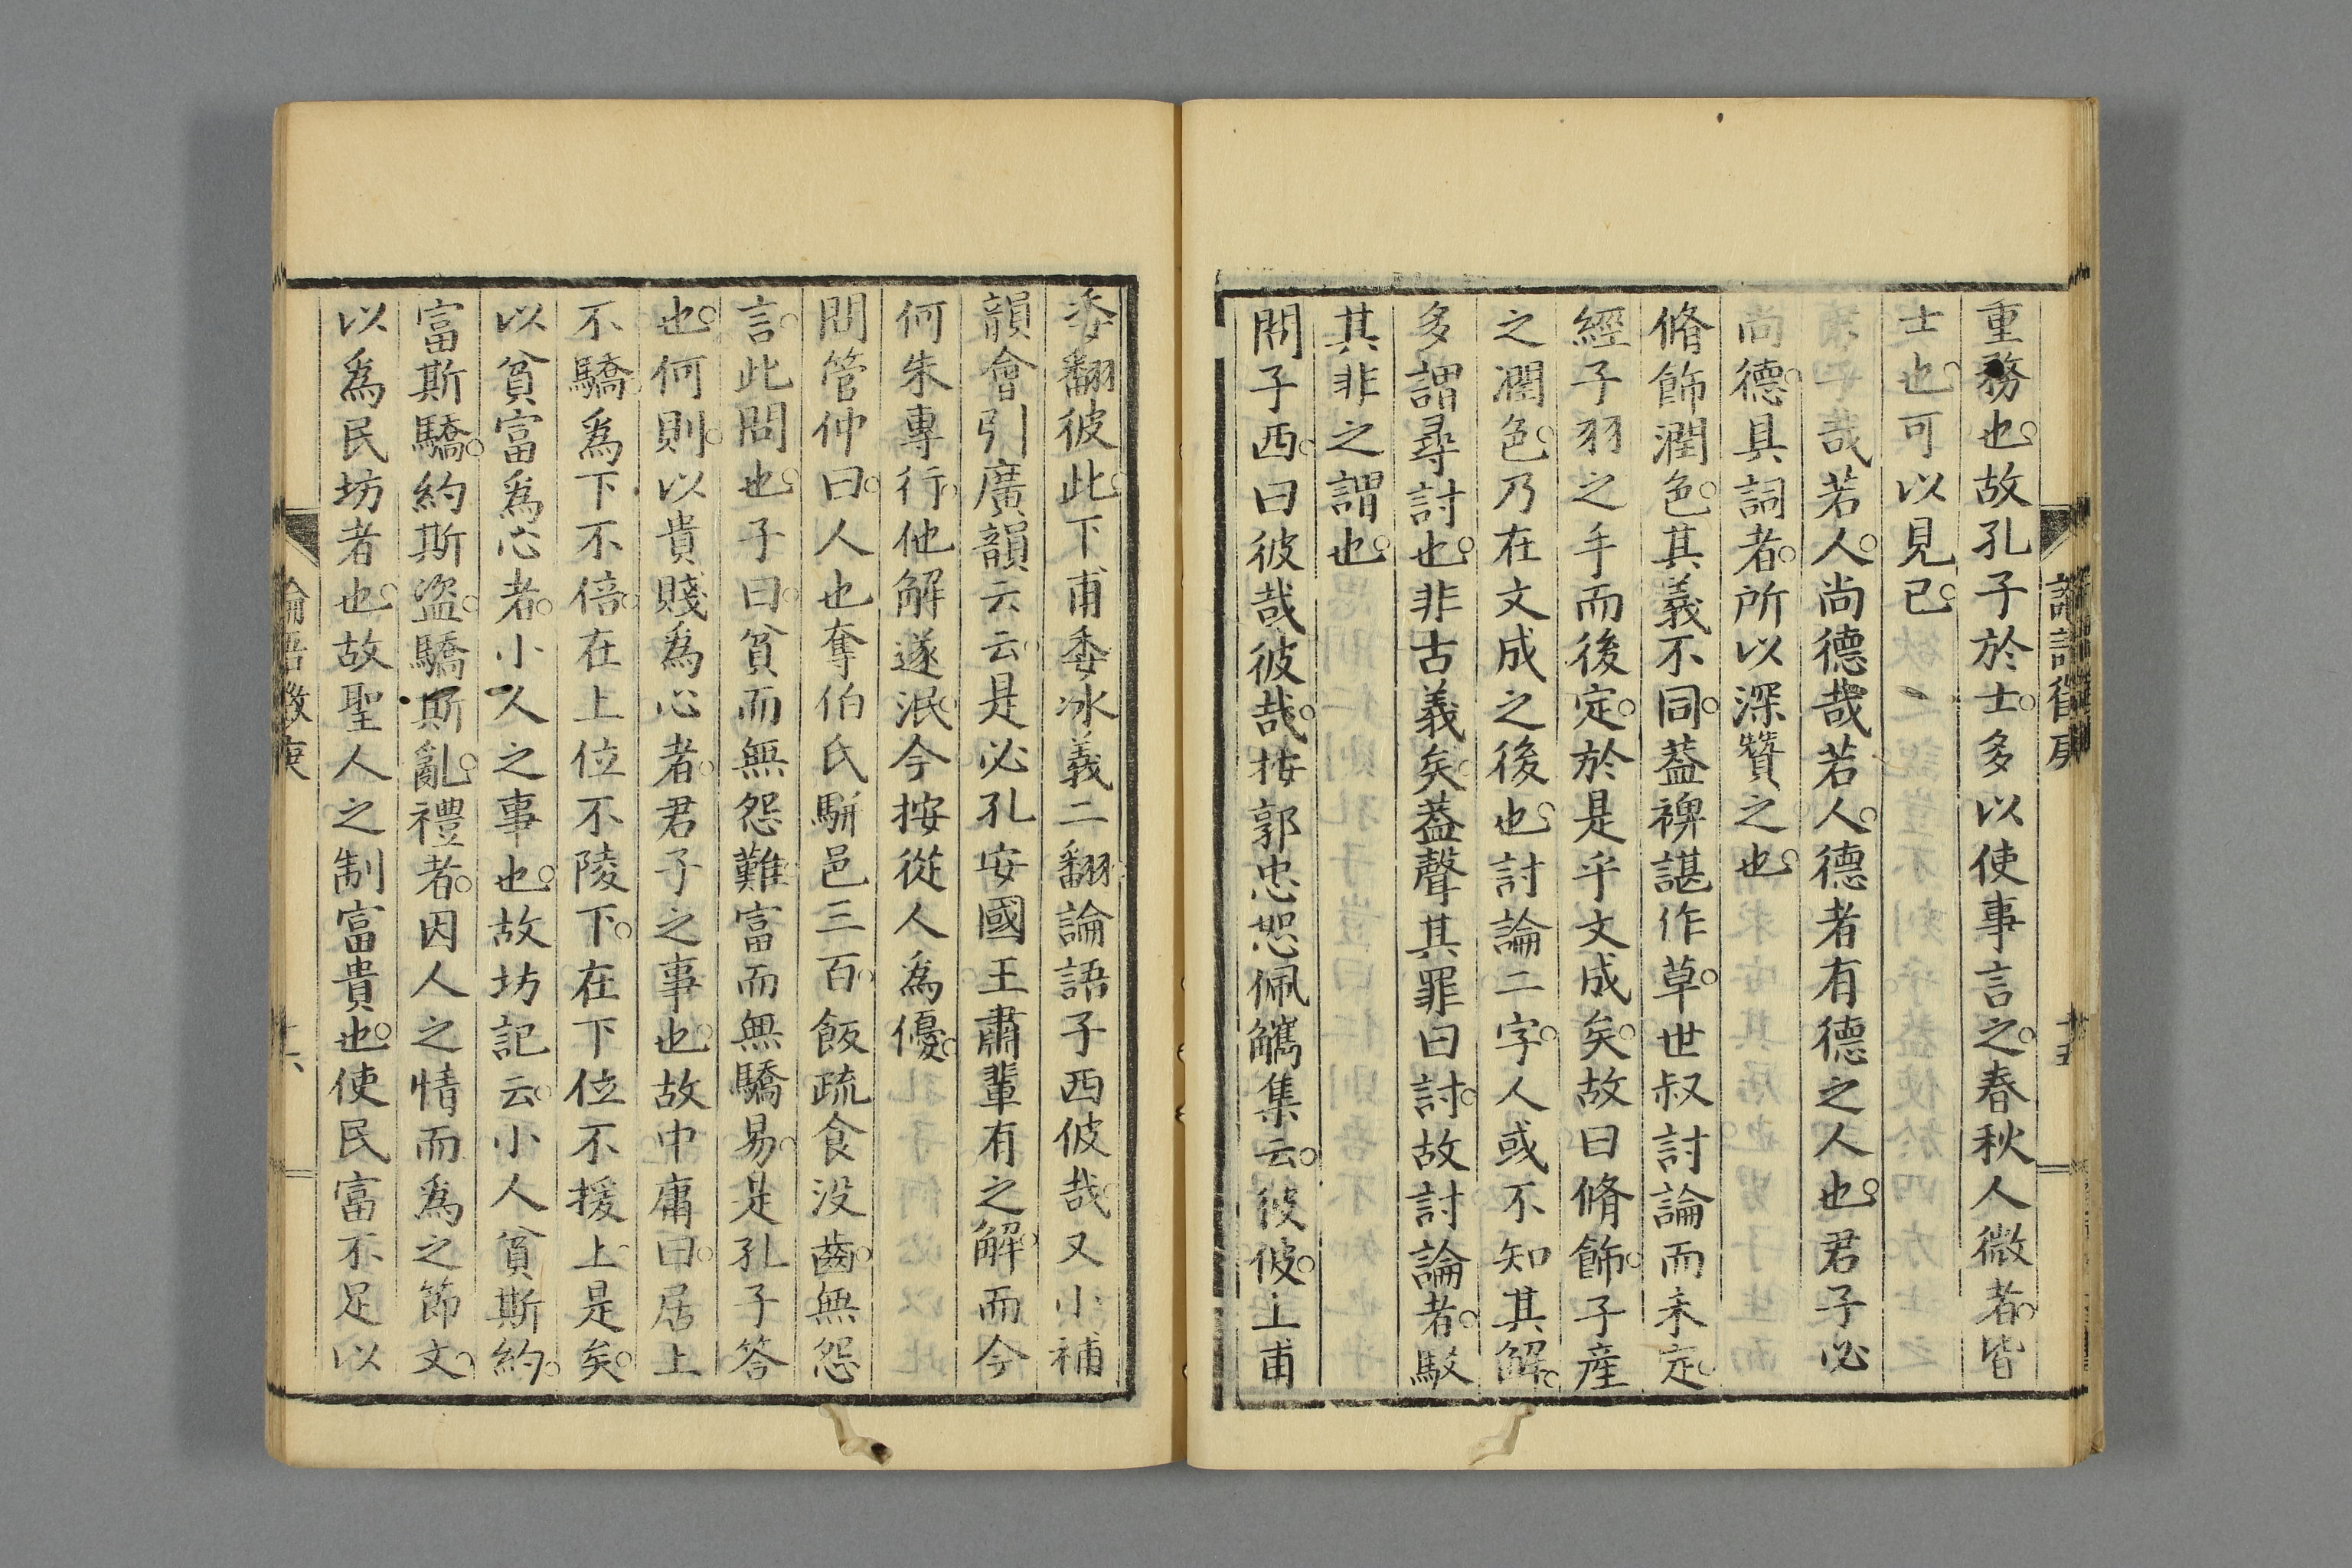 重務也。故孔子於士。多以使事言之。春秋人微者。皆
士也。可以見已。
子哉若人。尚德哉若人。德者有德之人也。君子必
尚德。具詞者。所以深贊之也。
脩飾潤色。其義不同。蓋裨諶作草。世叔討論而未定。
經子羽之手而後定。於是乎文成矣。故曰脩飾。子產
之潤色。乃在文成之後也。討論二字。人或不知其解。
多謂尋討也。非古義矣。蓋聲其罪曰討。故討論者。駁
其非之謂也。
問子西。曰彼哉彼哉。按郭忠恕佩觿集云。彼彼。上甫
委翻彼此。下甫委冰義二翻論語子西彼哉。又小補
韻會引廣韻云云。是必孔安國王肅輩有之解。而今
何朱專行。他解遂泯。今按從人為優。
問管仲曰。人也奪伯氏駢邑三百。飯疏食沒齒。無怨
言。此問也。子曰。貧而無怨難。富而無驕易。是孔子答
也。何則。以貴賤為心者。君子之事也。故中庸曰。居上
不驕。為下不倍。在上位不陵下。在下位不援上。是矣。
以貧富為心者。小人之事也。故坊記云。小人貧斯約。
富斯驕。約斯盜。驕斯亂。禮者。因人之情而為之節文。
以為民坊者也。故聖人之制富貴也。使民富不足以
十五